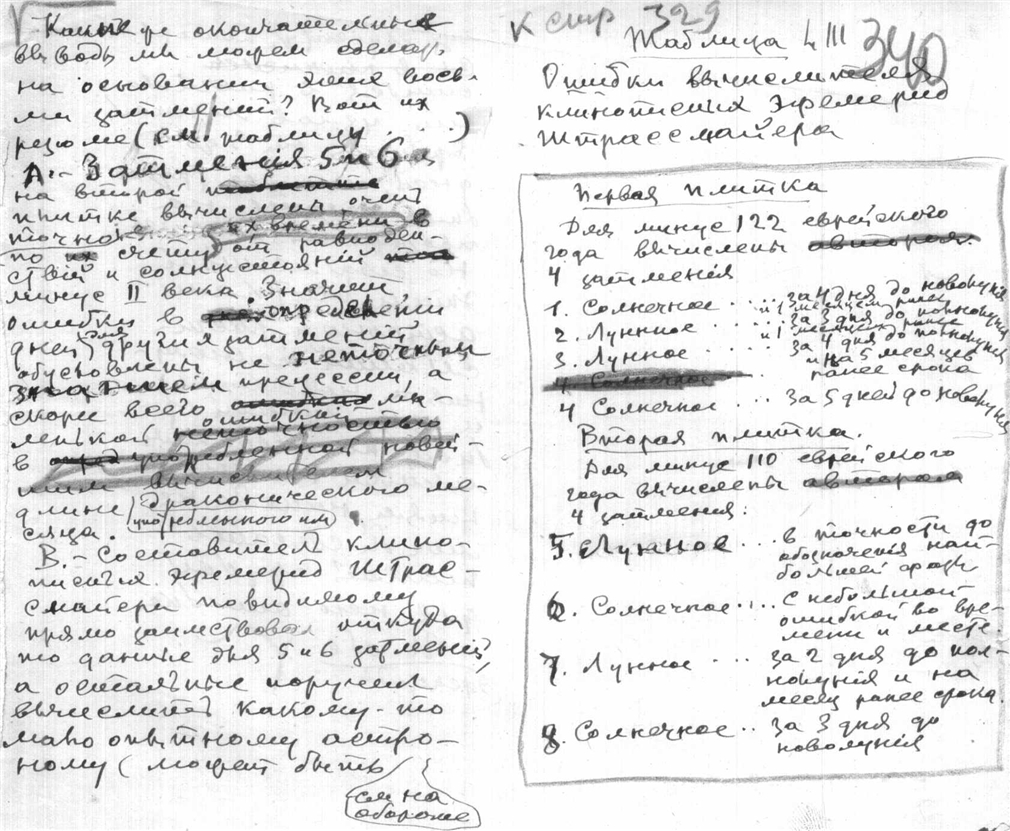 Какие же окончательные
выводы мы можем сделать
на основании этих вось-
ми затмений? Вот их
резюме (см. таблицу . . . )
А.- Затмения 5 и 6
на второй
плитке вычислены очень
точно их времени в
по счету от равноден-
ствий и солнцестояний
минус II века. Значит
ошибки в определении
дней для других затмений
обусловлены не неточным
знанием прецессии, а
скорее всего
ошибкой
в употребленной
длине драконического ме-
употребленного им
сяца.
В.- Составитель клино-
писных эфемерид Штрас-
смайера повидимому
прямо заимствовал откуда
то данные для 5 и 6 затмений,
а остальные поручил
вычислить какому-то
мало опытному астро-
ному (может быть
см. на
обороте
К стр 329
Таблица LIII
340
Ошибки вычислителя
клинописных эфемерид
Штрассмайера
Первая плитка
Для минус 122 еврейского
года вычислены
4 затмения
1. Солнечное . . . за 4 дня до новолуния
и 1 месяцем ранее
2. Лунное . . . . за 3 дня до полнолуния
и 1 месяцем ранее
3. Лунное . . . . за 4 дня до полнолуния
и на 5 месяцев
ранее срока
4 Солнечное
4 Солнечное . . за 5 дней до новолуния
Вторая плитка.
Для минус 110 еврейского
года вычислены автором
4 затмения:
5. Лунное . . . в точности до
обозначения наи-
большей фазы
6. Солнечное . . . . с небольшой
ошибкой во вре-
мени и месте
7. Лунное . . . за 2 дня до пол-
нолуния и на
месяц ранее срока.
8. Солнечное . . . за 3 дня до
новолуния